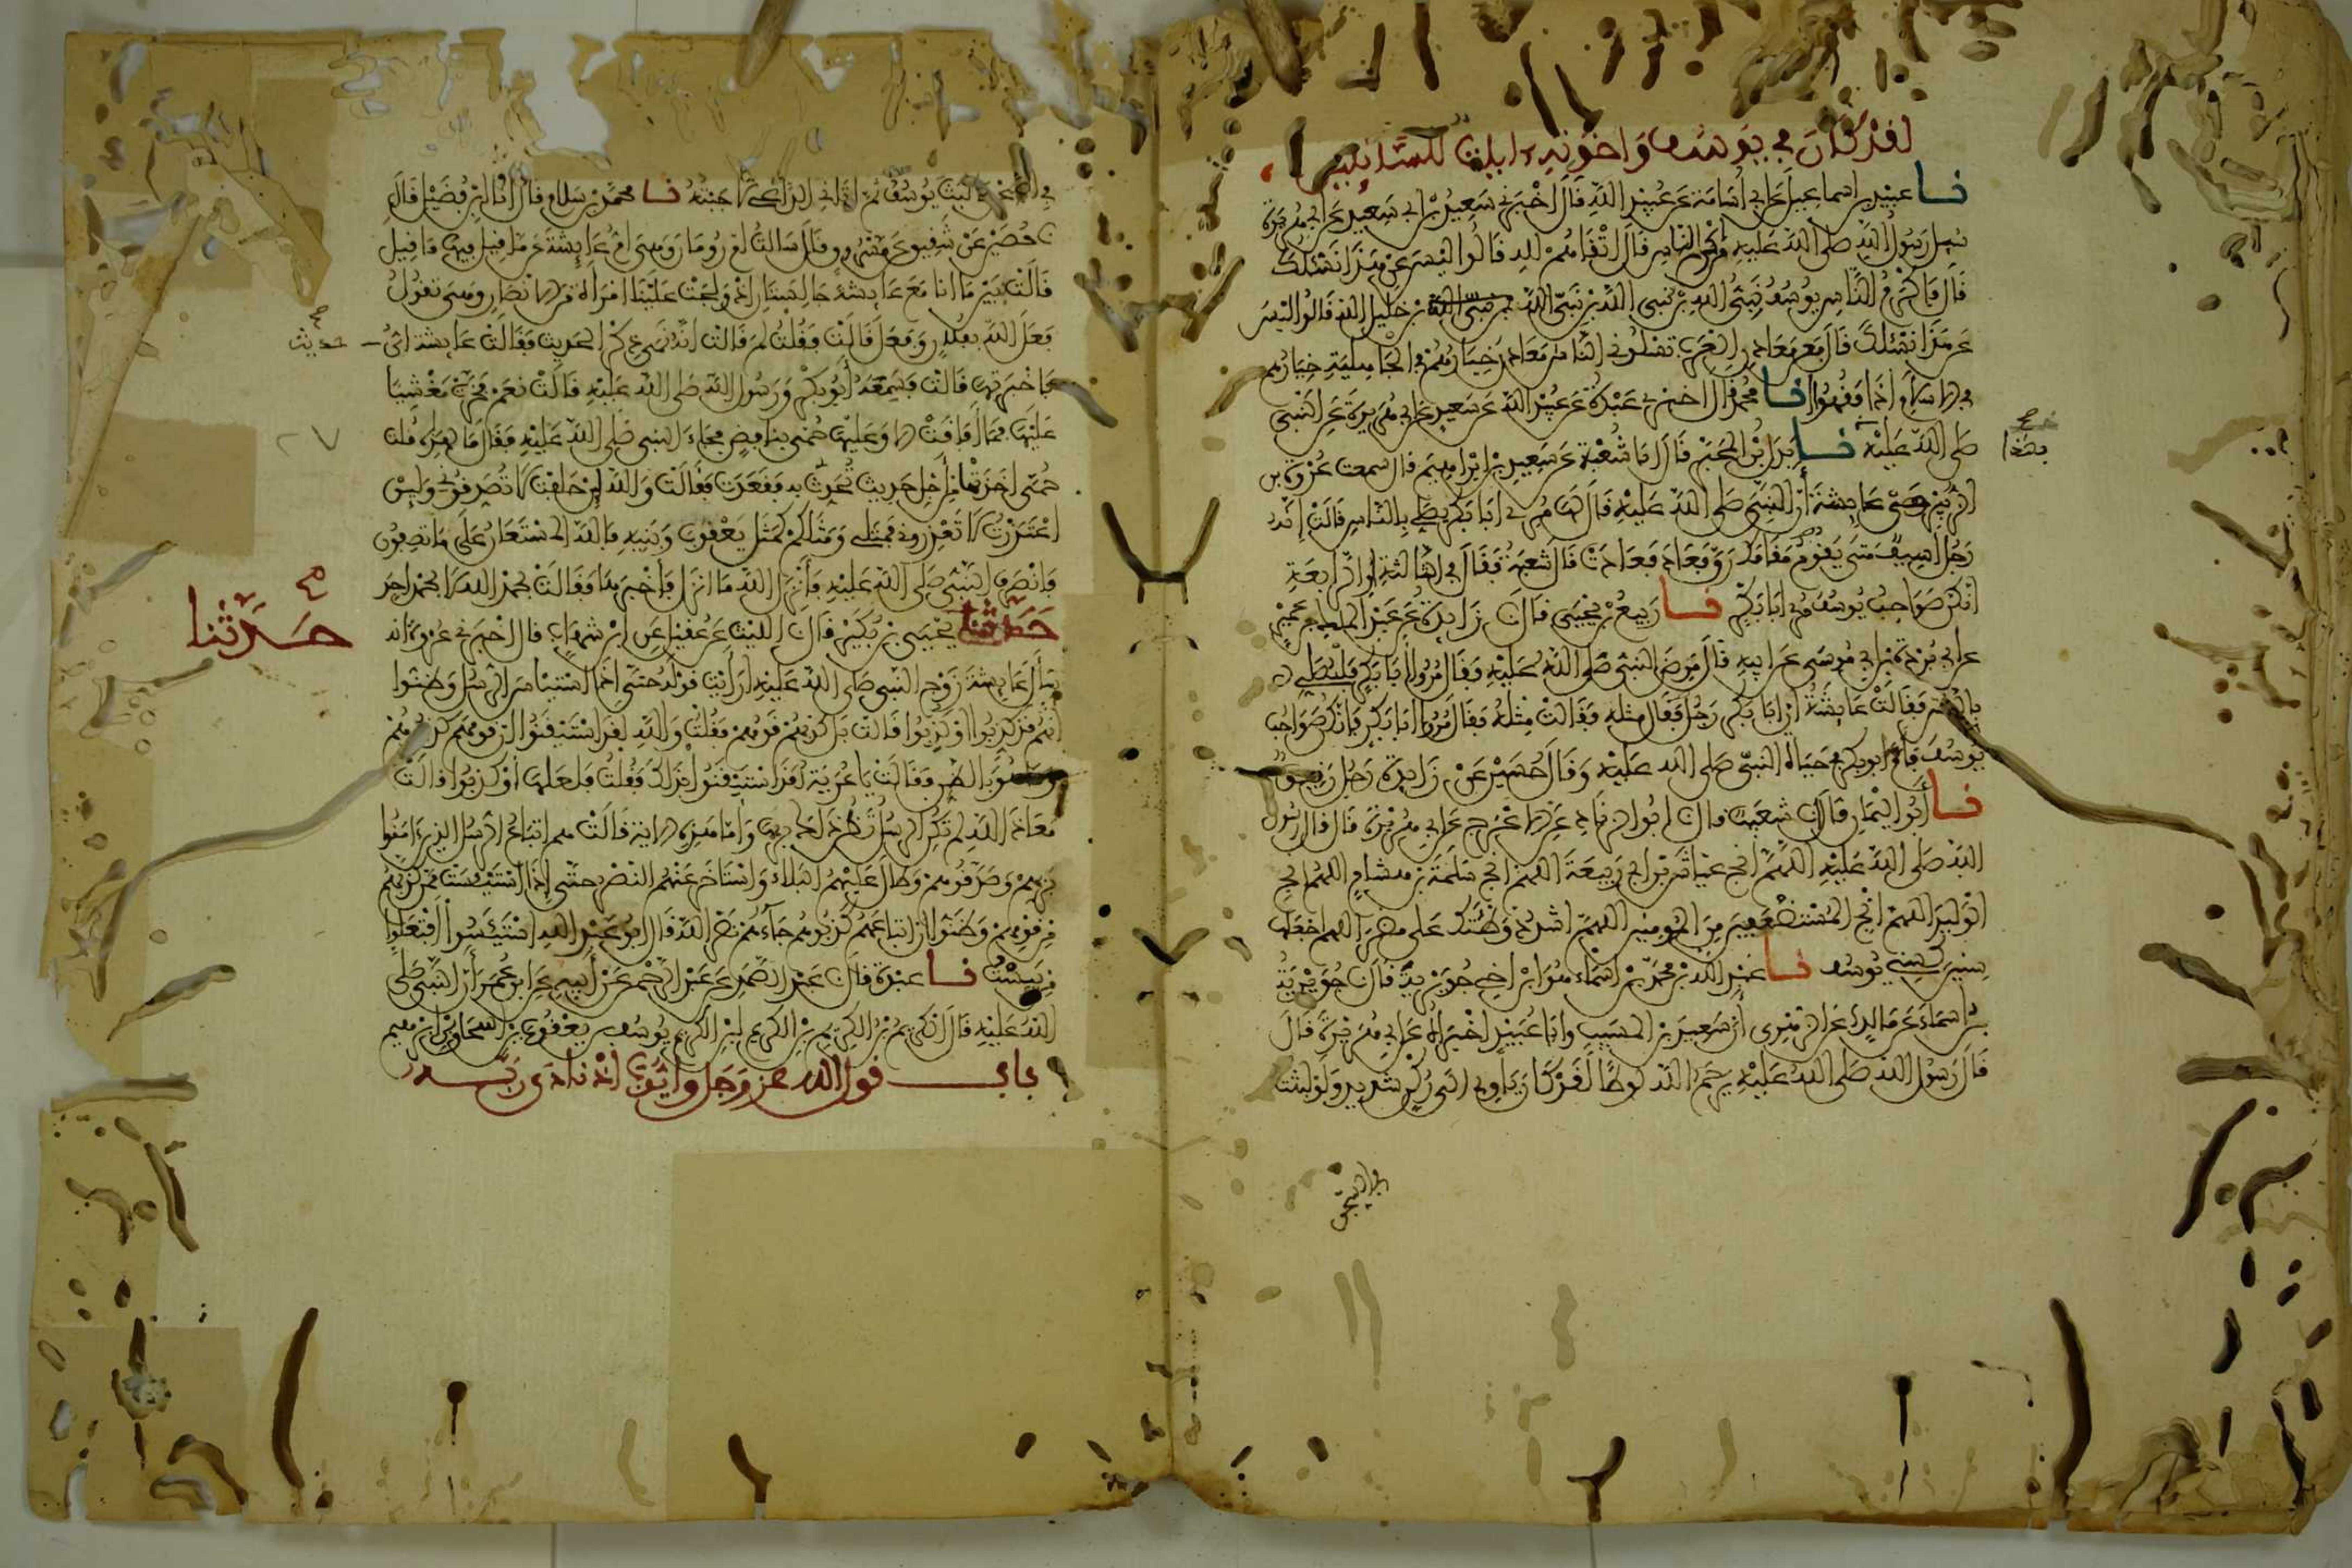 لقد كان في يوسف وإخوته آيات للسائلين
نا عبيد بن إسماعيل عن أبي أسامة عن عبيد الله قال أخبرني سعيد بن أبي سعيد عن أبي هريرة
سئل رسول الله صلى الله عليه من أكرم الناس قال أتقاهم لله قالوا ليس عن هذا نسئلك
قال فأكرم الناس يوسف نبي الله بن نبي الله بن نبي الله بن خليل الله قالوا ليس
عن هذا نسئلك قال فعن معادن العرب تسئلوني الناس معادن خيارهم في الجاهلية خيارهم
في الإسلام إذا فقهوا نا محمد قال أخبرني عبدة عن عبيد الله عن سعيد عن أبي هريرة عن النبي
بهذا
صلى الله عليه نا بدل بن المحبر قال نا شعبة عن سعد بن إبراهيم قال سمعت عروة بن
الزبير عن عايشة أن النبي صلى الله عليه قال لها مري أبا بكر يصلي بالناس قالت إنه
رجل أسيف متى يقوم مقامك رق فعاد فعادت قال شعبة فقال في الثالثة أو الرابعة
إنكن صواحب يوسف مري أبا بكر نا ربيع بن يحيى قال نا زايدة عن عبد الملك بن عمير
عن أبي بردة بن أبي موسى عن أبيه قال مرض النبي صلى الله عليه فقال مروا أبا بكر فليصلي
بالناس فقالت عايشة إن أبا بكر رجل فقال مثله فقالت مثله فقال مروا أبا بكر فإنكن صواحب
يوسف فأم أبو بكر في حياة النبي صلى الله عليه وقال حسين عن زايدة رجل رقيق
نا أبو اليمان قال نا شعيب قال نا أبو الزناد عن الأعرج عن أبي هريرة قال قال رسول
الله صلى الله عليه اللهم أنج عياش بن أبي ربيعة اللهم أنج سلمة بن هشام اللهم أنج
الوليد اللهم أنج المستضعفين من المومنين اللهم اشدد وطئتك على مضر اللهم اجعلها
سنين كسني يوسف نا عبد الله بن محمد بن أسماء هو ابن أخي جويرية قال نا جويرية
بن أسماء عن مالك عن الزهري أن سعيد بن المسيب وأبا عبيد أخبراه عن أبي هريرة قال
قال رسول الله صلى الله عليه يرحم الله لوطا لقد كان يأوي إلى ركن شديد ولو لبثت
في السجن
في السجن ما لبث يوسف ثم أتاني الداعي لأجبته نا محمد بن سلام قال أنا ابن فضيل قال
نا حصين عن شقيق عن مسروق قال سالت أم رومان وهي أم عايشة عما قيل فيها ما قيل
قالت بينما أنا مع عايشة جالستان إذ ولجت علينا امرأة من الأنصار وهي تقول
فعل الله بفلان وفعل قالت فقلت لم قالت إنه نمى ذكر الحديث فقالت عايشة أي
حديث
فأخبرتها قالت فسمعه أبو بكر ورسول الله صلى الله عليه قالت نعم فخرت مغشيا
عليها فما أفاقت إلا وعليها حمى بنافض فجاء النبي صلى الله عليه فقال ما لهذه قلت
حمى أخذتها من أجل حديث تحدث به فقعدت فقالت والله لئن حلفت لا تصدقوني ولين
اعتذرت لا تعذروني فمثلي ومثلكم كمثل يعقوب وبنيه فالله المستعان على ما تصفون
فانصرف النبي صلى الله عليه فأنزل الله ما أنزل فأخبرها فقالت بحمد الله لا بحمد أحد
حدثنا
حدثنا يحيى بن بكير قال نا الليث عن عقيل عن ابن شهاب قال أخبرني عروة أنه
سأل عايشة زوج النبي صلى الله عليه أرأيت قوله حتى إذا استيأس الرسل وظنوا
أنهم قد كذبوا أو كذبوا قالت بل كذبهم قومهم فقلت والله لقد استيقنوا أن قومهم كذبوهم
وما هو بالظن فقالت يا عرية لقد استيقنوا بذلك فقلت فلعلها أو كذبوا قالت
معاذ الله لم تكن الرسل تظن ذلك بربها وأما هذه الآية قالت هم أتباع الرسل الذين ءامنوا
بربهم وصدقوهم وطال عليهم البلاء واستأخر عنهم النصر حتى إذا استيئست ممن كذبهم
من قومهم وظنوا أن أتباعهم كذبوهم جاءهم نصر الله قال أبو عبد الله استيئسوا افتعلوا
من يئست نا عبدة قال نا عبد الصمد عن عبد الرحمن عن أبيه عن ابن عمر أن النبي صلى
الله عليه قال الكريم بن الكريم بن الكريم بن الكريم يوسف بن يعقوب بن إسحاق بن إبرهيم
باب قول الله عز وجل وأيوب إذ نادى ربه